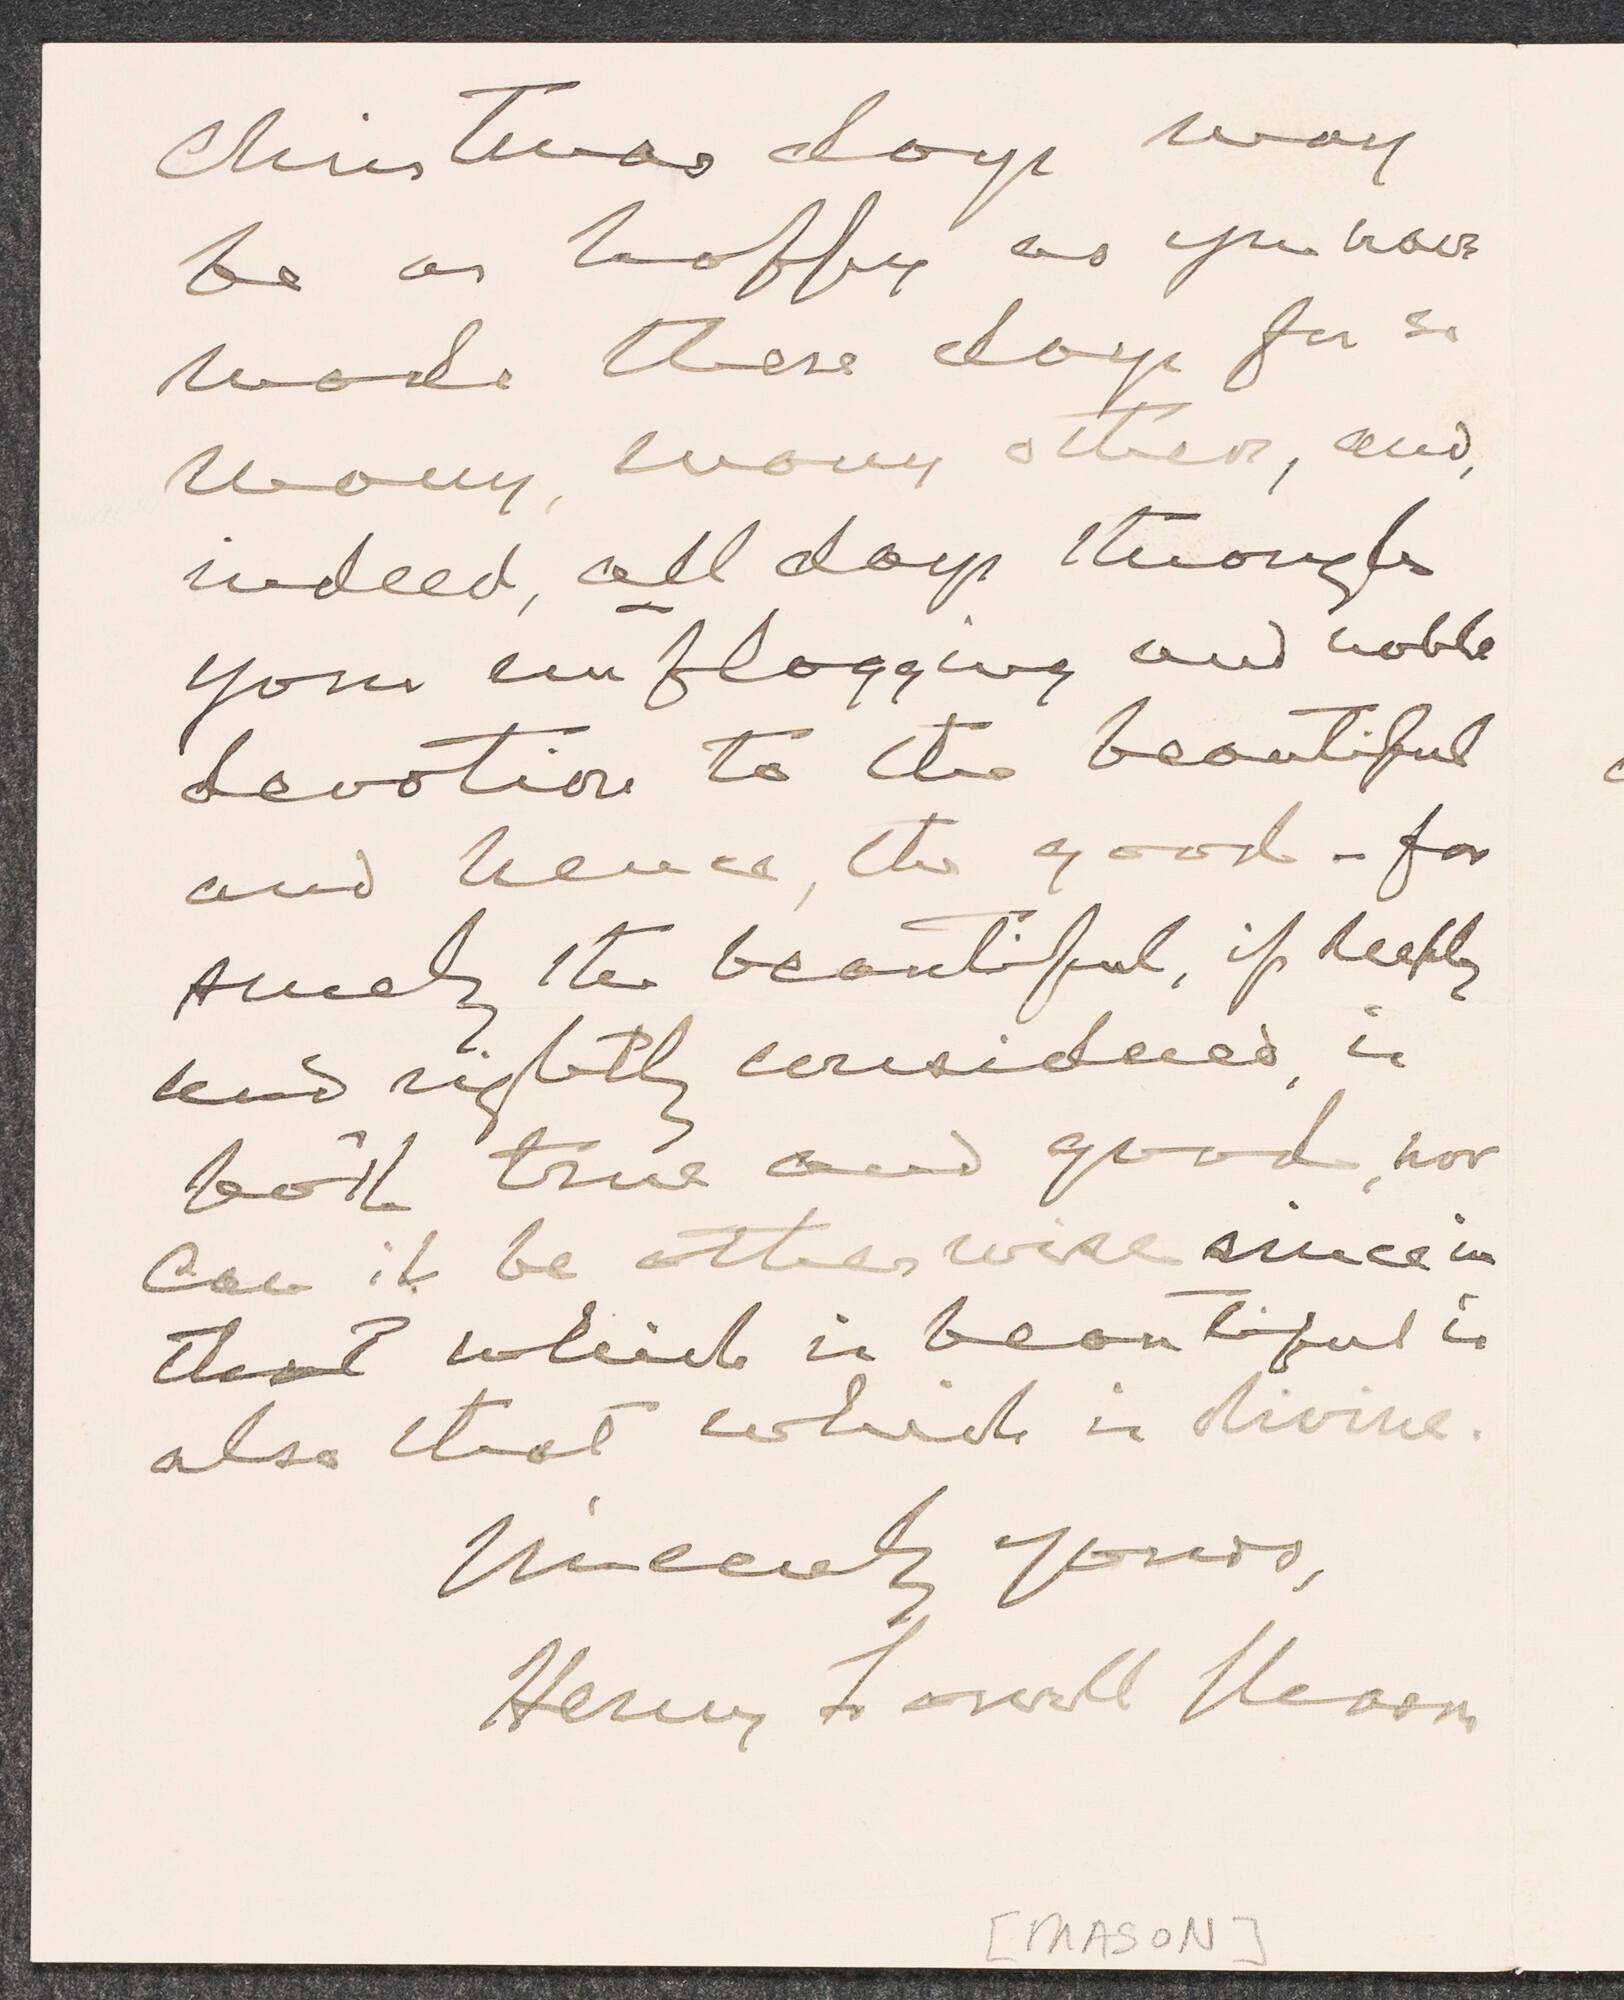 Christmas days may
be as happy as you have
made these days for so
many, many others, and,
indeed, all days through
your unflagging and noble
devotion to the beautiful
and hence, the good - for
surely the beautiful, if deeply
and rightly considered, is
both true and good, nor
can it be otherwise since in
that which is beautiful is
also that which is divine.
Sincerely yours,
Henry Lowell Mason
[MASON]